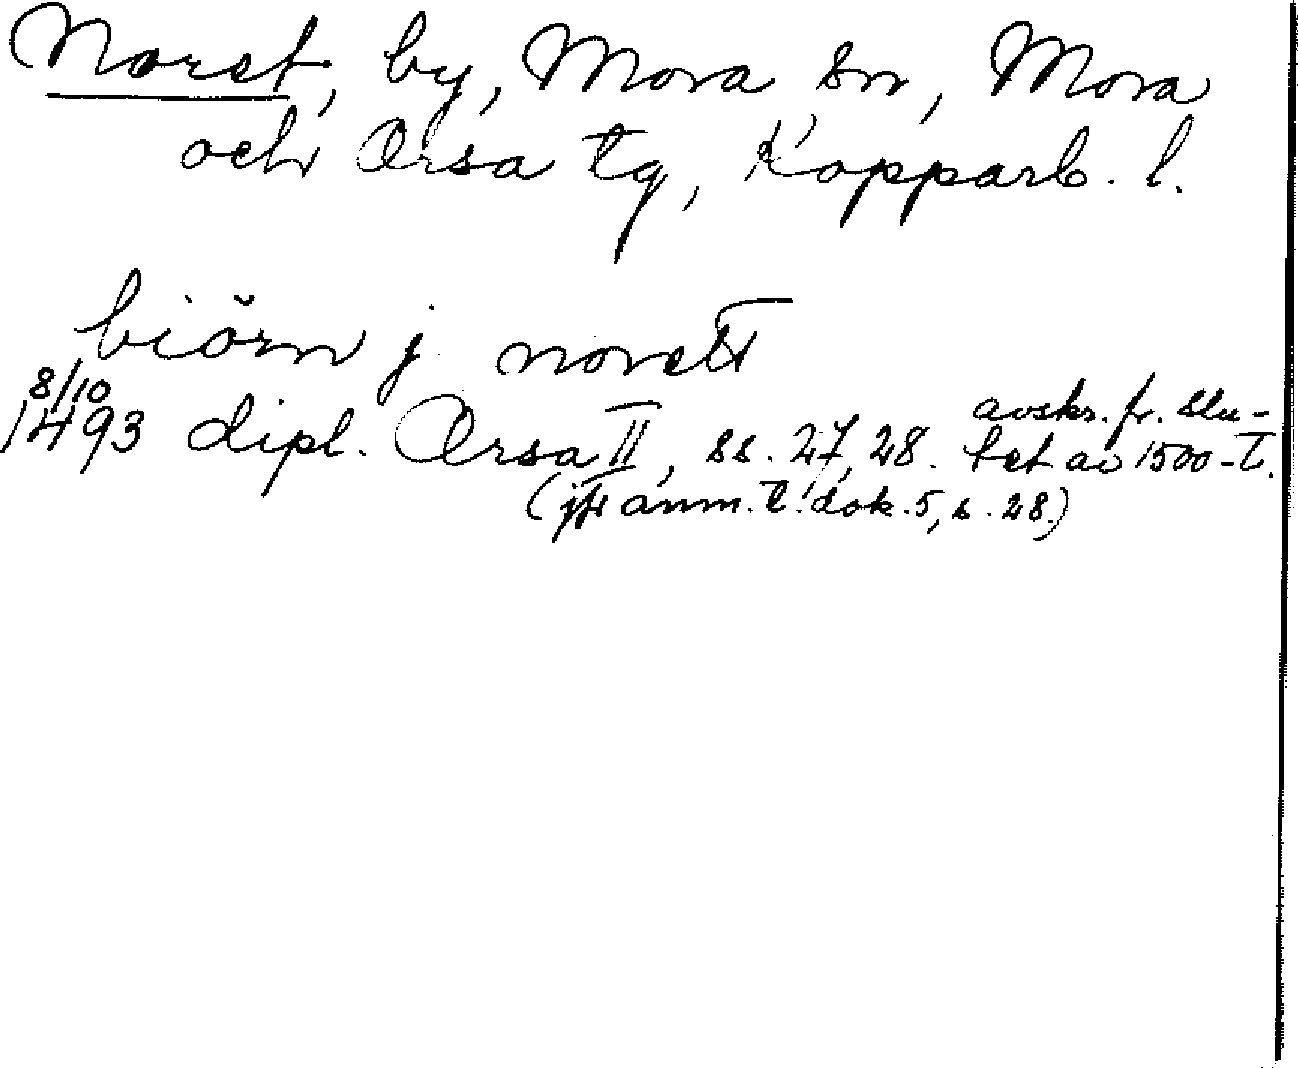 Noret, by, Mora sn, Mora
och Orsa tg, Kopparb. l.
biörn j norett
8/10
1493 dipl. Orsa II, ss. 27, 28. avskr. fr. slu-
tet av 1500-t.
(jfr anm. t. dok. 5, s. 28.)